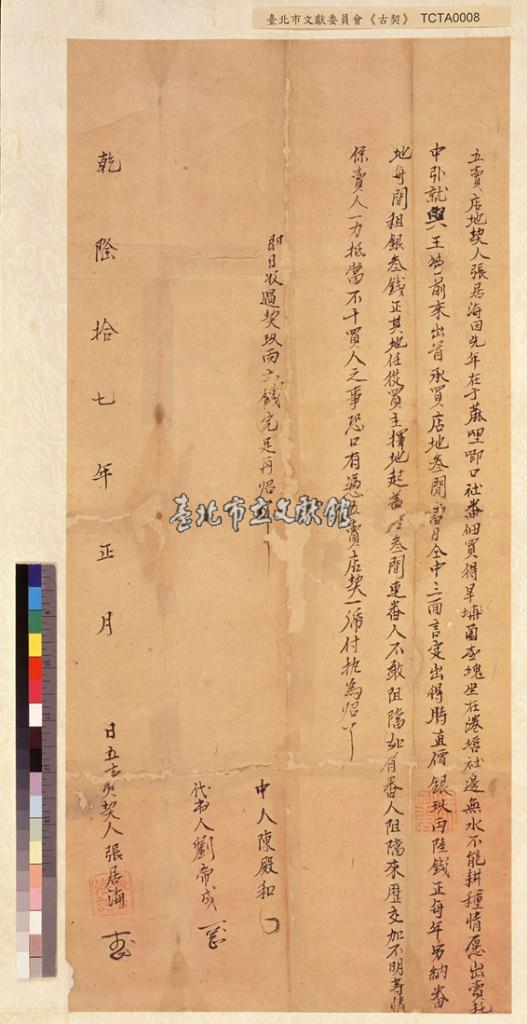 臺北市文獻委員會《古契》 TCTA0008
五賣店地契人張居海因先年在于蔴里即口社番細買得旱埔園壹塊坐在港墘社邊無水不能耕種情愿出賣托
中引就與王 前來出首承買店地叁間當日仝中三面言定出得時直價銀玖両陸錢正每年另納番
地每間租銀叁錢正其地任從買主擇地起蓋 叁間連番人不敢阻擋如有番人阻擋來歷交加不明等情
保賣人一力抵當不干買人之事恐口有憑五賣店契一紙付执為炤
即日收過契玖両六錢完足再炤
中人陳殿和
代書人劉帝成
乾隆拾七年正月 日五賣契人張居海
臺北市立文獻館